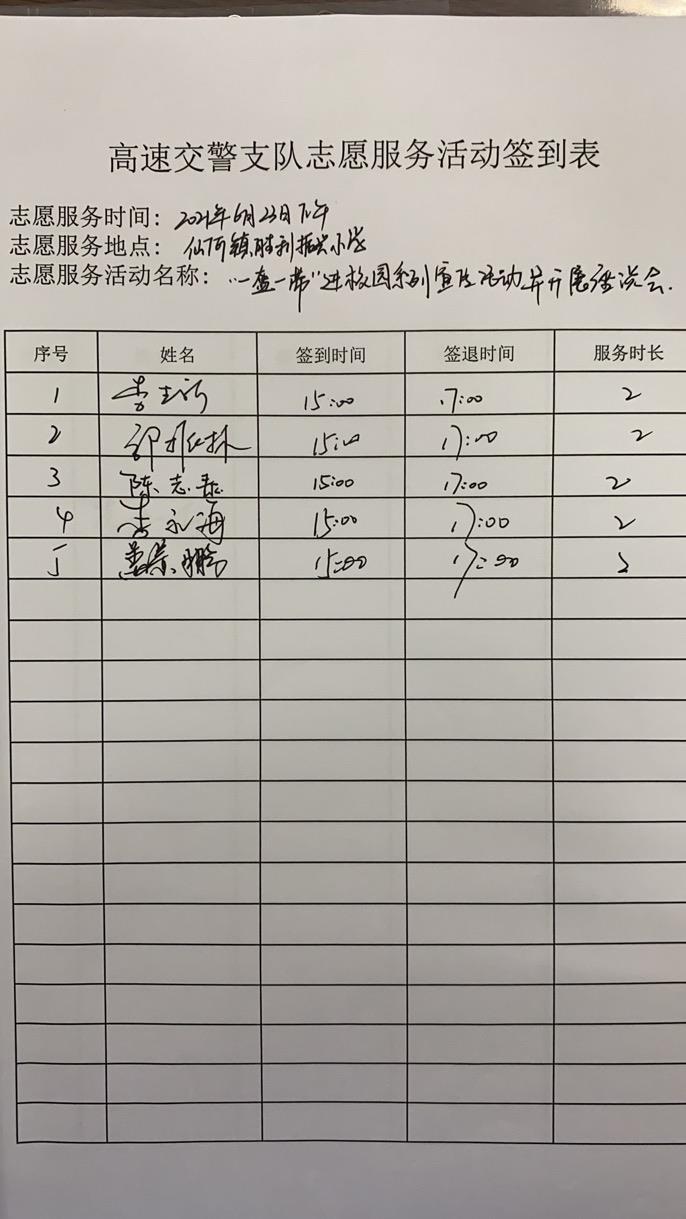 高速交警支队志愿服务活动签到表
志愿服务时间：2021年6月23日下午
志愿服务地点：仙河镇胜利振兴小学
志愿服务活动名称："一盔一带"进校园系列宣传活动并开展座谈会.
序号 姓名 签到时间 签退时间 服务时长
1 李 15:00 17:00 2
2 15:00 17:00 2
3 陈志 15:00 17:00 2
4 李永海 15:00 17:00 2
5 15:00 17:00 2